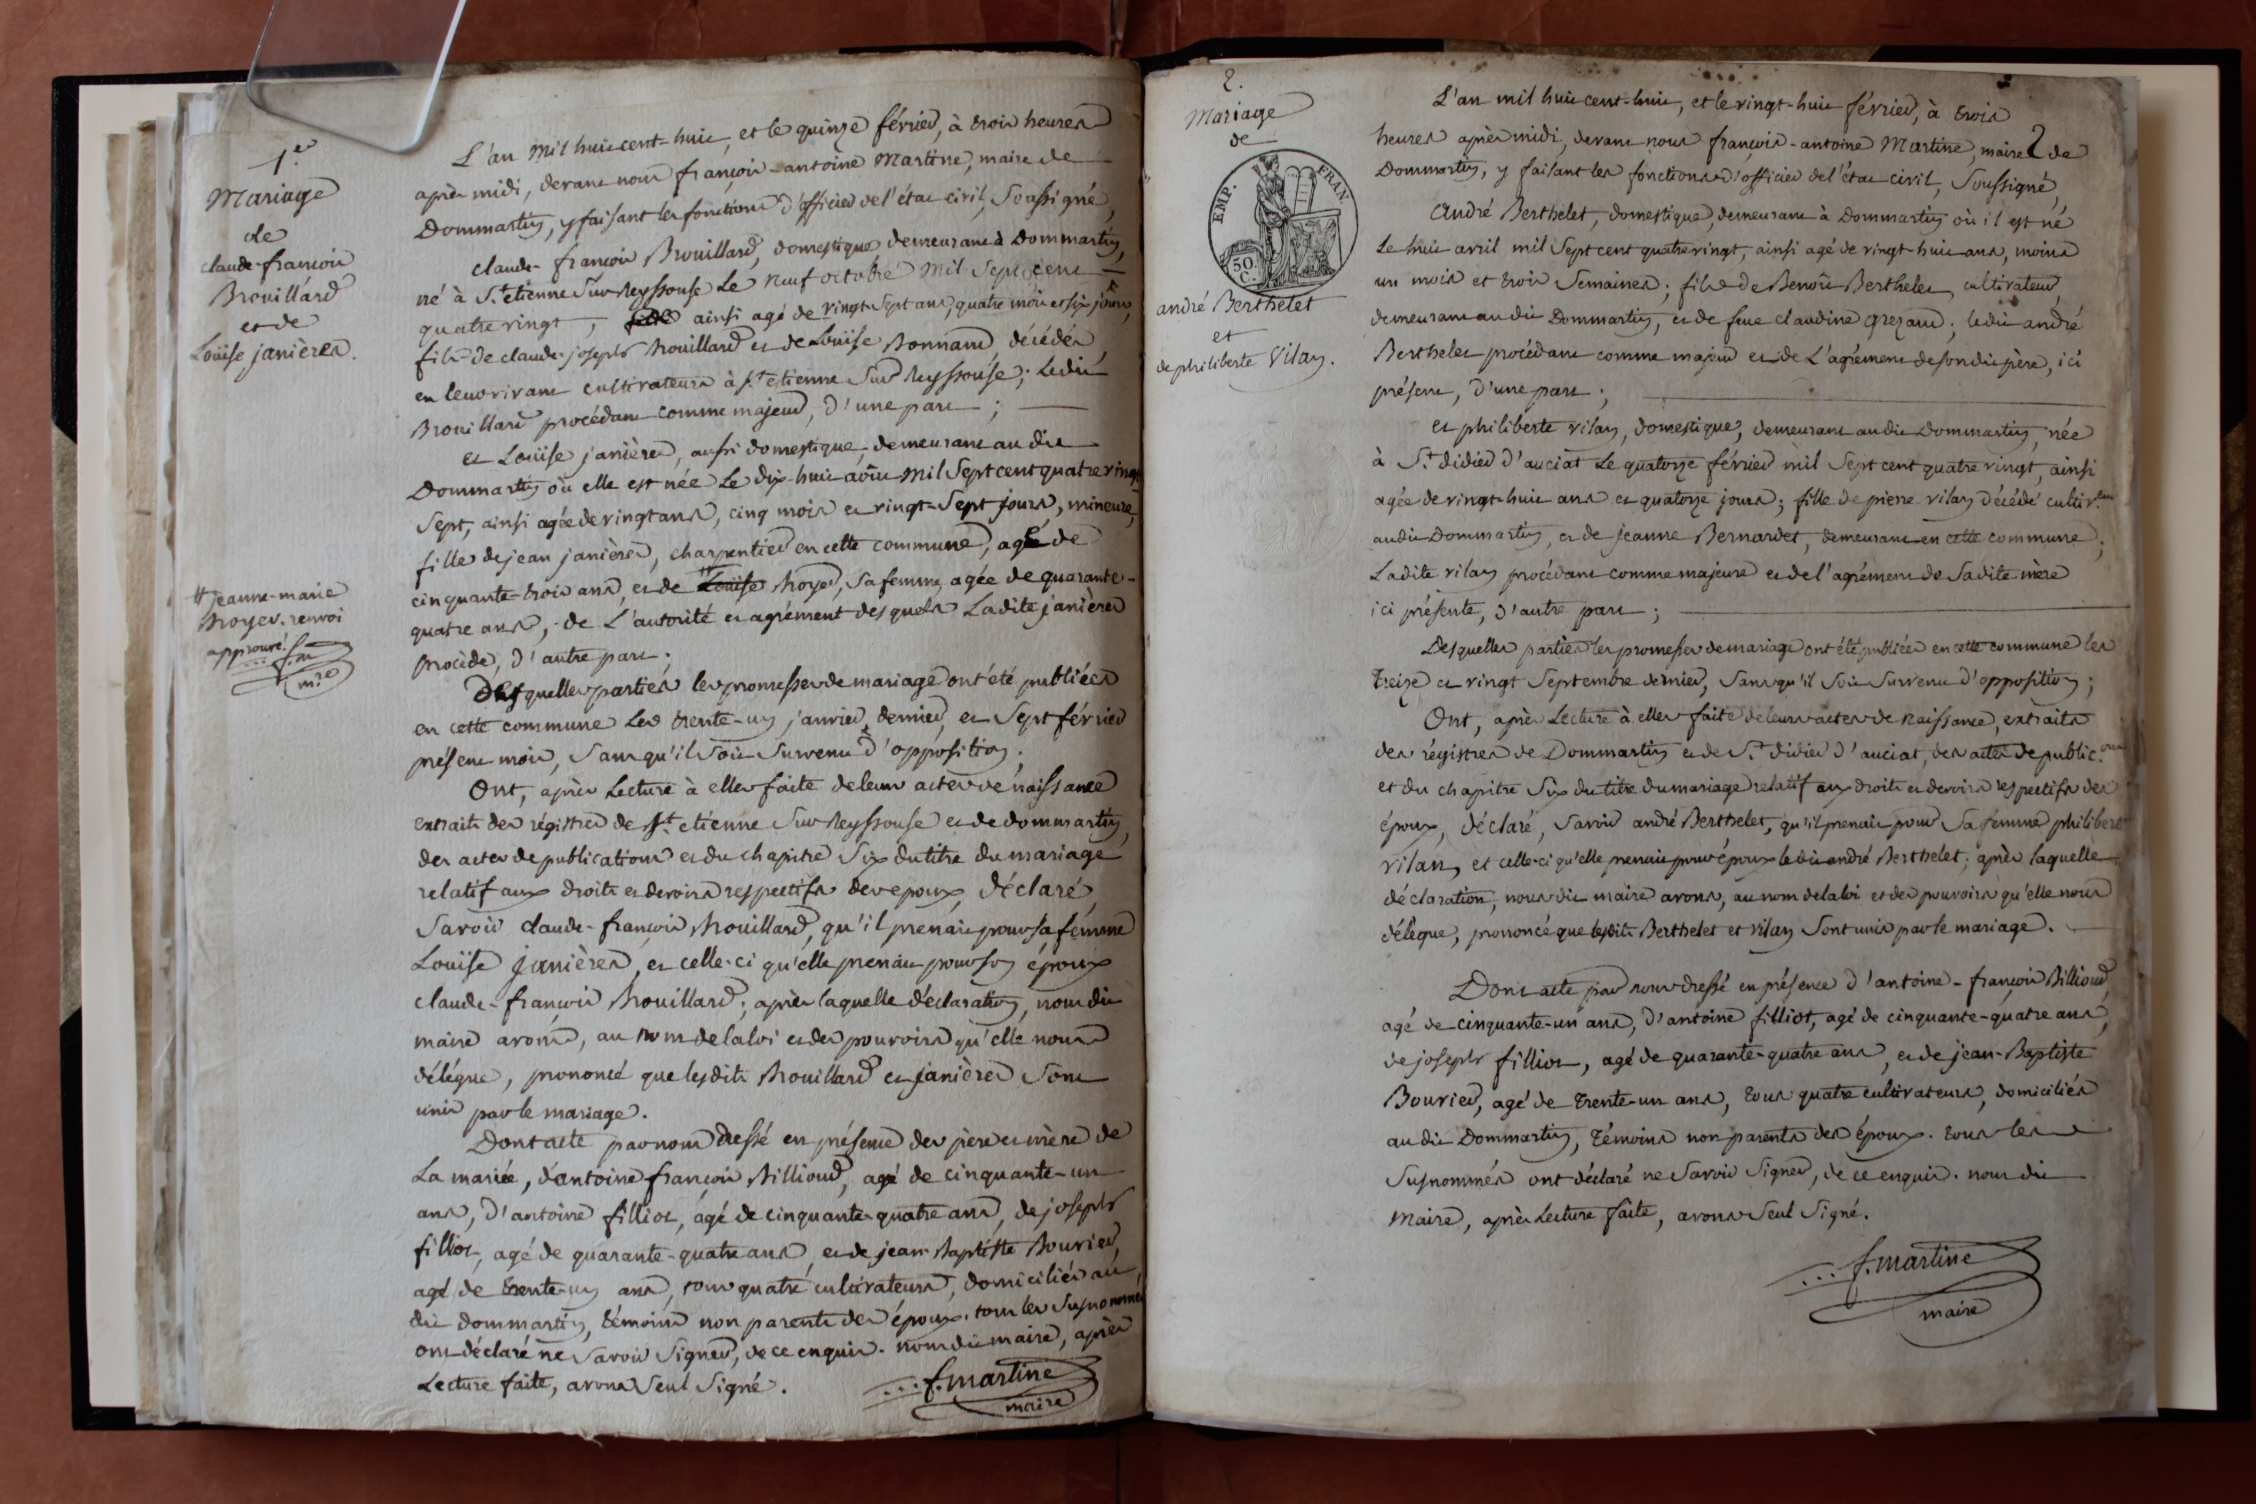 1.er
Mariage
de
claude-françois
Brouillard
et de
Loüise janières.
L'an mil huit cent-huit, et le quinze février, à trois heures
après midi, devant nous françois-antoine Martine, maire de
Dommartin, y faisant les fonctions d'officier de l'état civil, Soussigné,
claude-françois Brouillard, domestique demeurant à Dommartin,
né à S.t etienne Sur Reyssouse Le neuf octobre mil Sept cent
quatre vingt, ainsi agé de vingt Sept ans, quatre mois et six jours,
fils de claude-joseph Brouillard et de Loüise Bonnand décédés,
en leur vivant cultivateurs à S.t etienne Sur Reyssouse; Ledit
Brouillard procédant comme majeur, d'une part;
et Loüise janières, aussi domestique, demeurant au dit
Dommartin où elle est née Le dix-huit août mil Sept cent quatre vingt
Sept, ainsi agée de vingt ans, cinq mois et vingt-Sept jours, mineure,
fille de jean janières, charpentier en cette commune, agé de
cinquante-trois ans, et de Loüise # Broyer, Sa femme, agée de quarante-
quatre ans, de L'autorité et agrément desquels Ladite janières
procède, d'autre part.
# jeanne-marie
Broyer. renvoi
approuvé. f. m
m.re
Desquelles parties les promesses de mariage ont été publiées
en cette commune Les trente-un janvier dernier, et Sept février
présent mois, Sans qu'il Soit Survenu d'opposition;
Ont, après Lecture à elles faite de leurs actes de naissance
extraits des régistres de S.t etienne Sur Reyssouse et de dommartin,
des actes de publications et du chapitre Six du titre du mariage
relatif aux droits et devoirs respectifs des epoux, déclaré,
Savoir claude-françois Brouillard, qu'il prenait pour sa femme
Louïse janières, et celle-ci qu'elle prenait pour son époux
claude-françois Brouillard; après laquelle déclaration, nous dit
maire avons, au nom de la loi et des pouvoirs qu'elle nous
délégue, prononcé que lesdits Brouillard et janières Sont
unis par le mariage.
Dont acte par nous dressé en présence des père et mère de
La mariée, d'antoine françois Billioud, agé de cinquante-un
ans, d'antoine filliot, agé de cinquante-quatre ans, de joseph
filliot, agé de quarante-quatre ans, et de jean-Baptiste Bouvier,
agé de trente-un ans, tous quatre cultivateurs, domiciliés au
dit dommartin, témoins non parents des époux. tous les Susnommés
ont déclaré ne Savoir Signer, de ce enquis. nous dit maire, après
Lecture faite, avons Seul Signé.
f. martine
maire
2.
Mariage
de
EMP. FRAN
50 C.
andré Berthelet
et
de philiberte Vilan.
2
L'an mil huit cent-huit, et le vingt-huit février, à trois
heures après midi, devant nous françois-antoine Martine, maire de
Dommartin, y faisant les fonctions d'officier de l'état civil, Soussigné,
André Berthelet, domestique, demeurant à Dommartin où il est né
Le huit avril mil Sept cent quatre vingt, ainsi agé de vingt-huit ans, moins
un mois et trois Semaines; fils de Benoît Berthelet, cultivateur,
demeurant au dit Dommartin, et de feue claudine ; ledit andré
Berthelet procédant comme majeur et de L'agrément de son dit père, ici
présent, d'une part;
et philiberte vilan, domestique, demeurant au dit Dommartin, née
à S.t didier d'auciat Le quatorze février mil Sept cent quatre vingt, ainsi
agée de vingt-huit ans et quatorze jours; fille de pierre vilan décédé cultiv.teur
au dit Dommartin, et de Jeanne Bernardet, demeurant en cette commune;
Ladite vilan procédant comme majeure et de l'agrément de Sadite mère
ici présente, d'autre part;
Desquelles parties les promesses de mariage ont été publiées en cette commune les
Treize et vingt Septembre dernier, Sans qu'il Soit Survenu d'opposition;
Ont, après Lecture à elles faite de leurs actes de naissance, extraits
des régistres de Dommartin et de S.t didier d'auciat, des actes de public.ons
et du chapitre Six du titre du mariage relatif aux droits et devoirs respectifs des
époux, déclaré, Savoir andré Berthelet, qu'il prenait pour Sa femme philiberte
vilan, et celle-ci qu'elle prenait pour époux ledit andré Berthelet; après laquelle
déclaration, nous dit maire avons, au nom de la loi et des pouvoirs qu'elle nous
délègue, prononcé que lesdits Berthelet et vilan Sont unis par le mariage.
Dont acte par nous dressé en présence d'antoine-françois Billioud,
agé de cinquante-un ans, d'antoine filliot, agé de cinquante-quatre ans,
de joseph filliot, agé de quarante-quatre ans, et de jean-Baptiste
Bouvier, agé de trente-un ans, tous quatre cultivateurs, domiciliés
au dit Dommartin, témoins non parents des époux. tous les
Susnommés ont déclaré ne Savoir Signer, de ce enquis. nous dit
maire, après Lecture faite, avons Seul Signé.
f. martine
maire